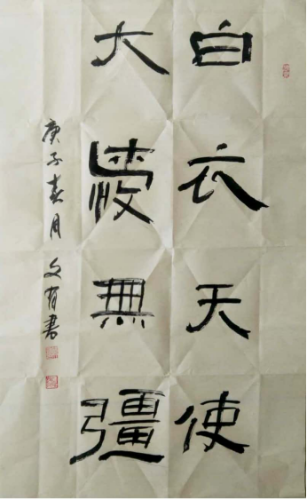 白衣天使
大愛無疆
庚子春月 文 書